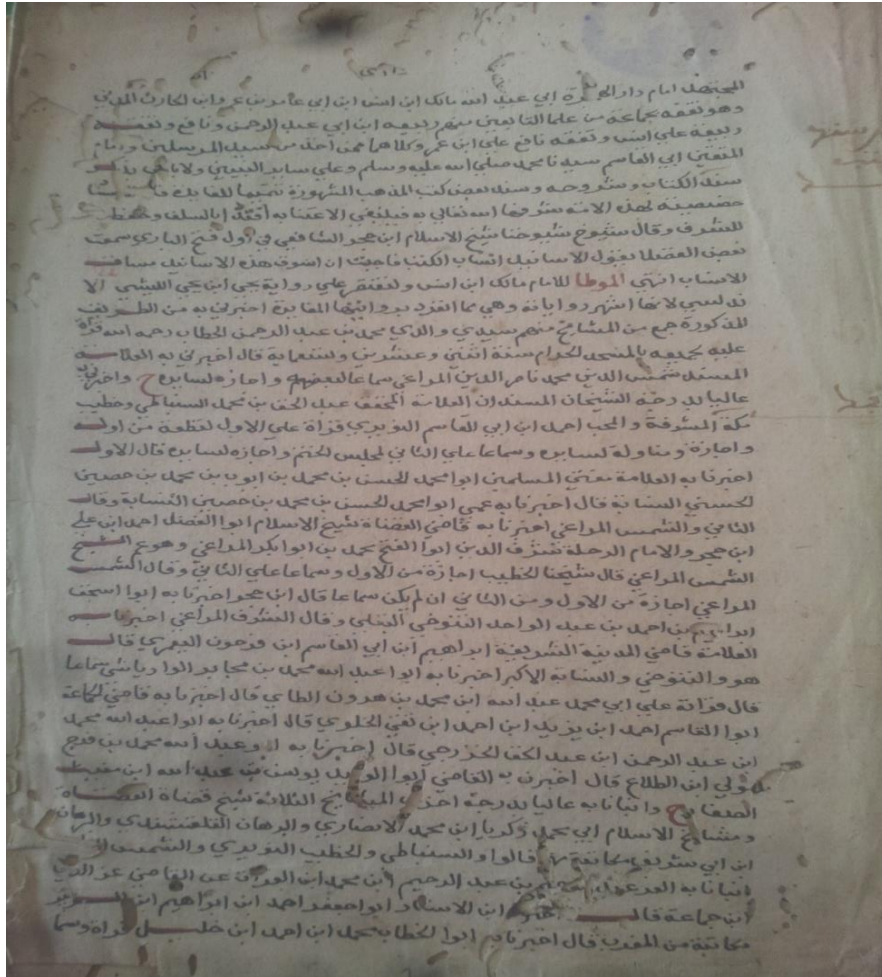 المجتهد امام دار الهجرة ابي عبد الله مالك ابن انس ابن ابي عامر بن عمرو ابن الحارث المدني
وهو تفقه بجماعة من علما التابعين منهم ربيعه ابن ابي عبد الرحمن ونافع وتفقه
ربيعة علي انس وتفقه نافع علي ابن عمر وكلاهما ممن اخذ من سيد المرسلين وامام
المتقين ابي القاسم سيدنا محمد صلي الله عليه وسلم وعلي ساير النبيين ولاباس بذكر
سند الكتاب وشروحه وسند بعض كتب المذهب المشهورة تتميما للفايدة
خصيصية لهذه الامة شرفها الله تعالي به فينبغي الاعتنا به اقتدا بالسلف وحفظا
للشرف وقال شيخ شيوخنا شيخ الاسلام ابن حجر الشافعي في اول فتح الباري سمعت
بعض الفضلا يقول الاسانيد انساب الكتب فاحببت ان اسوق هذه الاسانيد مساق
الانساب انتهي الموطا للامام مالك ابن انس ولنقتصر علي رواية يحي ابن يحي الليثي الا
ندلسي لانها اشهر رواياته وهي مما انفرد بروايتها المغاربة اخبرني به من الطريق
المذكورة جمع من المشايخ منهم سيدي و والدي محمد بن عبد الرحمن الحطاب رحمه الله قراة
عليه لجميعه بالمسجد الحرام سنة اثنتي وعشرين وتسعماية قال اخبرني به العلامة
المسند شمس الدين محمد ناصر الدين المراغي سماعا لبعضه واجازة لسايره ح واخبرني به
عاليا بدرجة الشيخان المسندان العلامة المحقق عبد الحق بن محمد السنباطي وخطيب
مكة المشرفة والمحب احمد ابن ابي القاسم النويري قراة علي الاول لقطعة من اوله
واجازة ومناولة لسايره وسماعا علي الثاني لمجلس الختم واجازة لسايره قال الاول
اخبرنا به العلامة مفتي المسلمين ابوا محمد الحسن بن محمد بن ايوب بن محمد بن حصين
الحسني النسابة قال اخبرنا به عمي ابوا محمد الحسن بن محمد بن حصين النسابة وقال
الثاني والشمس المراغي اخبرنا به قاضي القضاة شيخ الاسلام ابوا الفضل احمد ابن علي
ابن حجر والامام الرحلة شرف الدين ابوا الفتح محمد بن ابوا بكر المراغي وهو عم الشيخ
الشمس المراغي قال شيخنا الخطيب اجازة من الاول وسماعا علي الثاني وقال الشمس
المراغي اجازة من الاول ومن الثاني ان لم يكن سماعا قال ابن حجر اخبرنا به ابوا اسحق
ابراهيم بن احمد بن عبد الواحد التنوخي البعلي وقال الشرف المراغي اخبرنا به
العلامة قاضي المدينة الشريفة ابراهيم ابن ابي القاسم ابن فرحون اليعمري قال
هو والتنوخي والنسابة الاكبر اخبرنا به ابوا عبد الله محمد بن جابر الوادياشي سماعا
قال قراته علي ابي محمد عبد الله ابن محمد بن هرون الطاي قال اخبرنا به قاضي الجماعة
ابوا القاسم احمد ابن يزيد ابن احمد ابن تقي الخلوي قال اخبرنا به ابوا عبد الله محمد
ابن عبد الرحمن ابن عبد الحق الخزرجي قال اخبرنا به ابو عبد الله محمد بن فرج
مولي ابن الطلاع قال اخبرنا به القاضي ابوا الوليد يونس بن عبد الله ابن مغيث
الصفار ح وانبانا به عاليا بدرجة اخري المشايخ الثلاثة شيخ قضاة القضاة
ومشايخ الاسلام ابي محمد زكريا ابن محمد الانصاري والبرهان القلقشندي والبرهان
ابن ابي شريف مكاتبة قالوا والسنباطي والخطيب النويري والشمس
انبانا به العز عبد الرحيم بن عبد الرحيم ابن محمد ابن الفرات عن القاضي عز الدين
ابن جماعة قال ابن الاستاذ ابوا جعفر احمد ابن ابراهيم ابن الزبير
مكاتبة من المغرب قال اخبرنا به ابوا الخطاب محمد ابن احمد ابن خليل قراة وسما